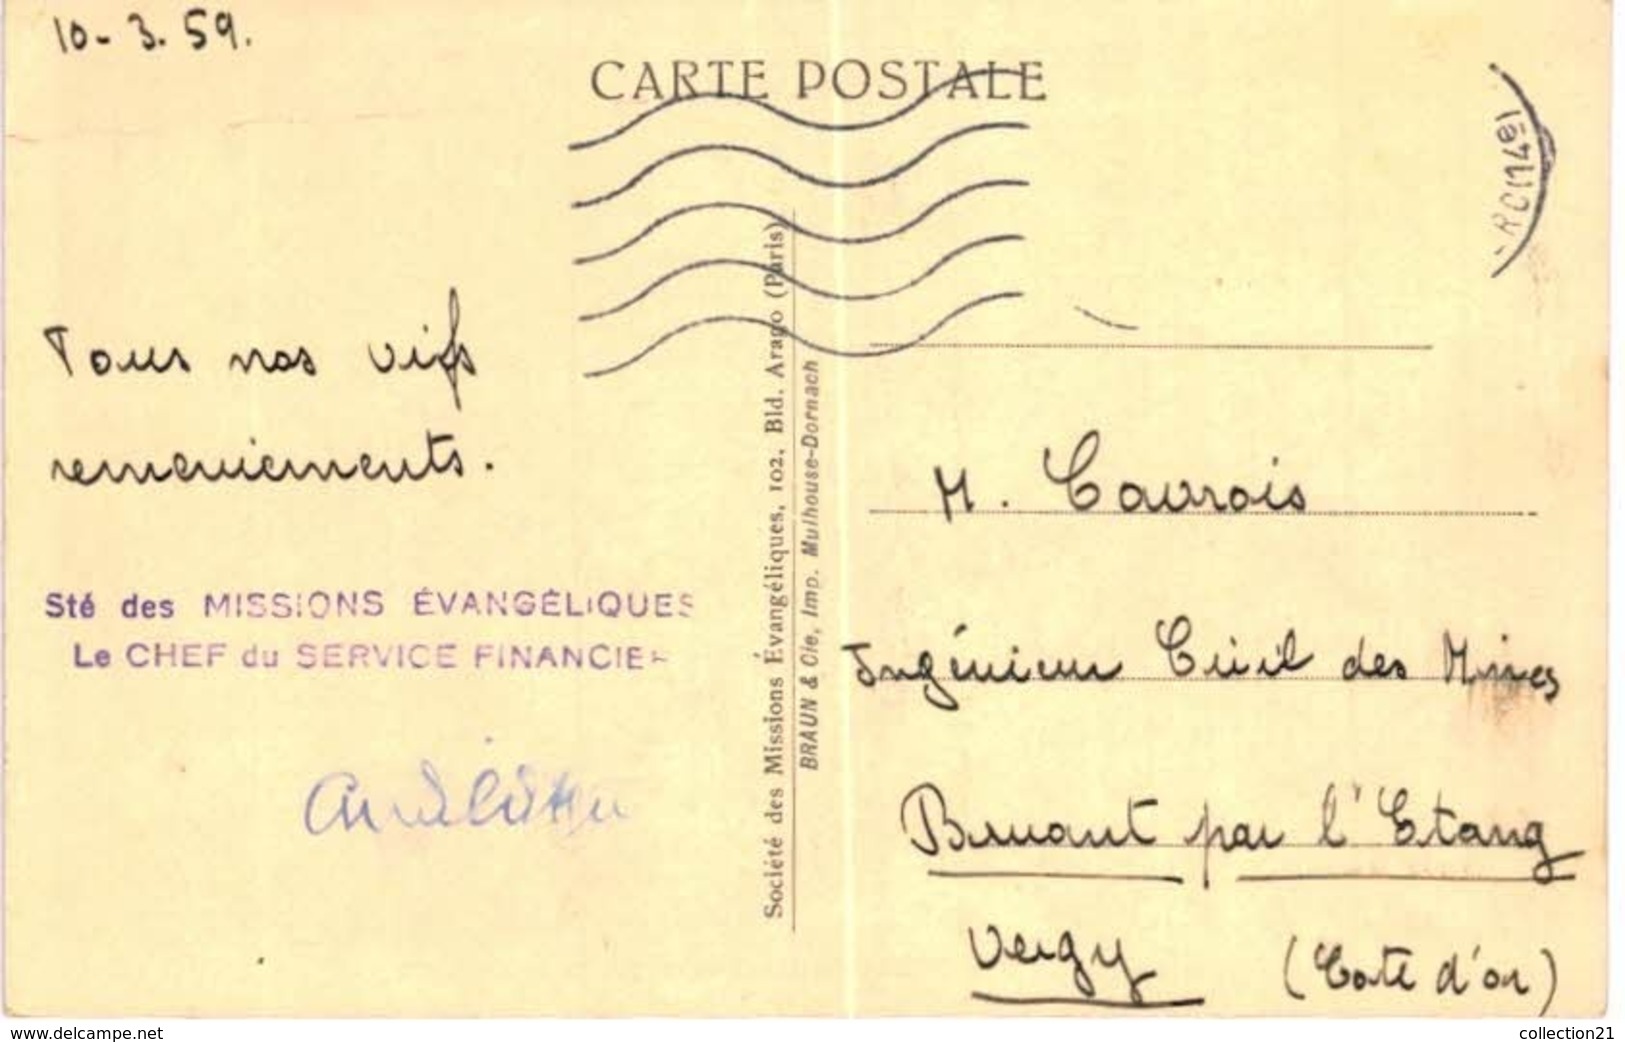 10-3.59.
CARTE POSTALE
Tous nos vifs
remerciements.
Sté des MISSIONS ÉVANGÉLIQUES
Le CHEF du SERVICE FINANCIER
Société des Missions Évangéliques, 102, Bld. Arago (Paris)
BRAUN & Cie, Imp. Mulhouse-Dornach
M. Courrois
Ingénieur Civil des Mines
Bruant par l'Etang
Vergy (Cote d'or)
www.delcampe.net
collection21